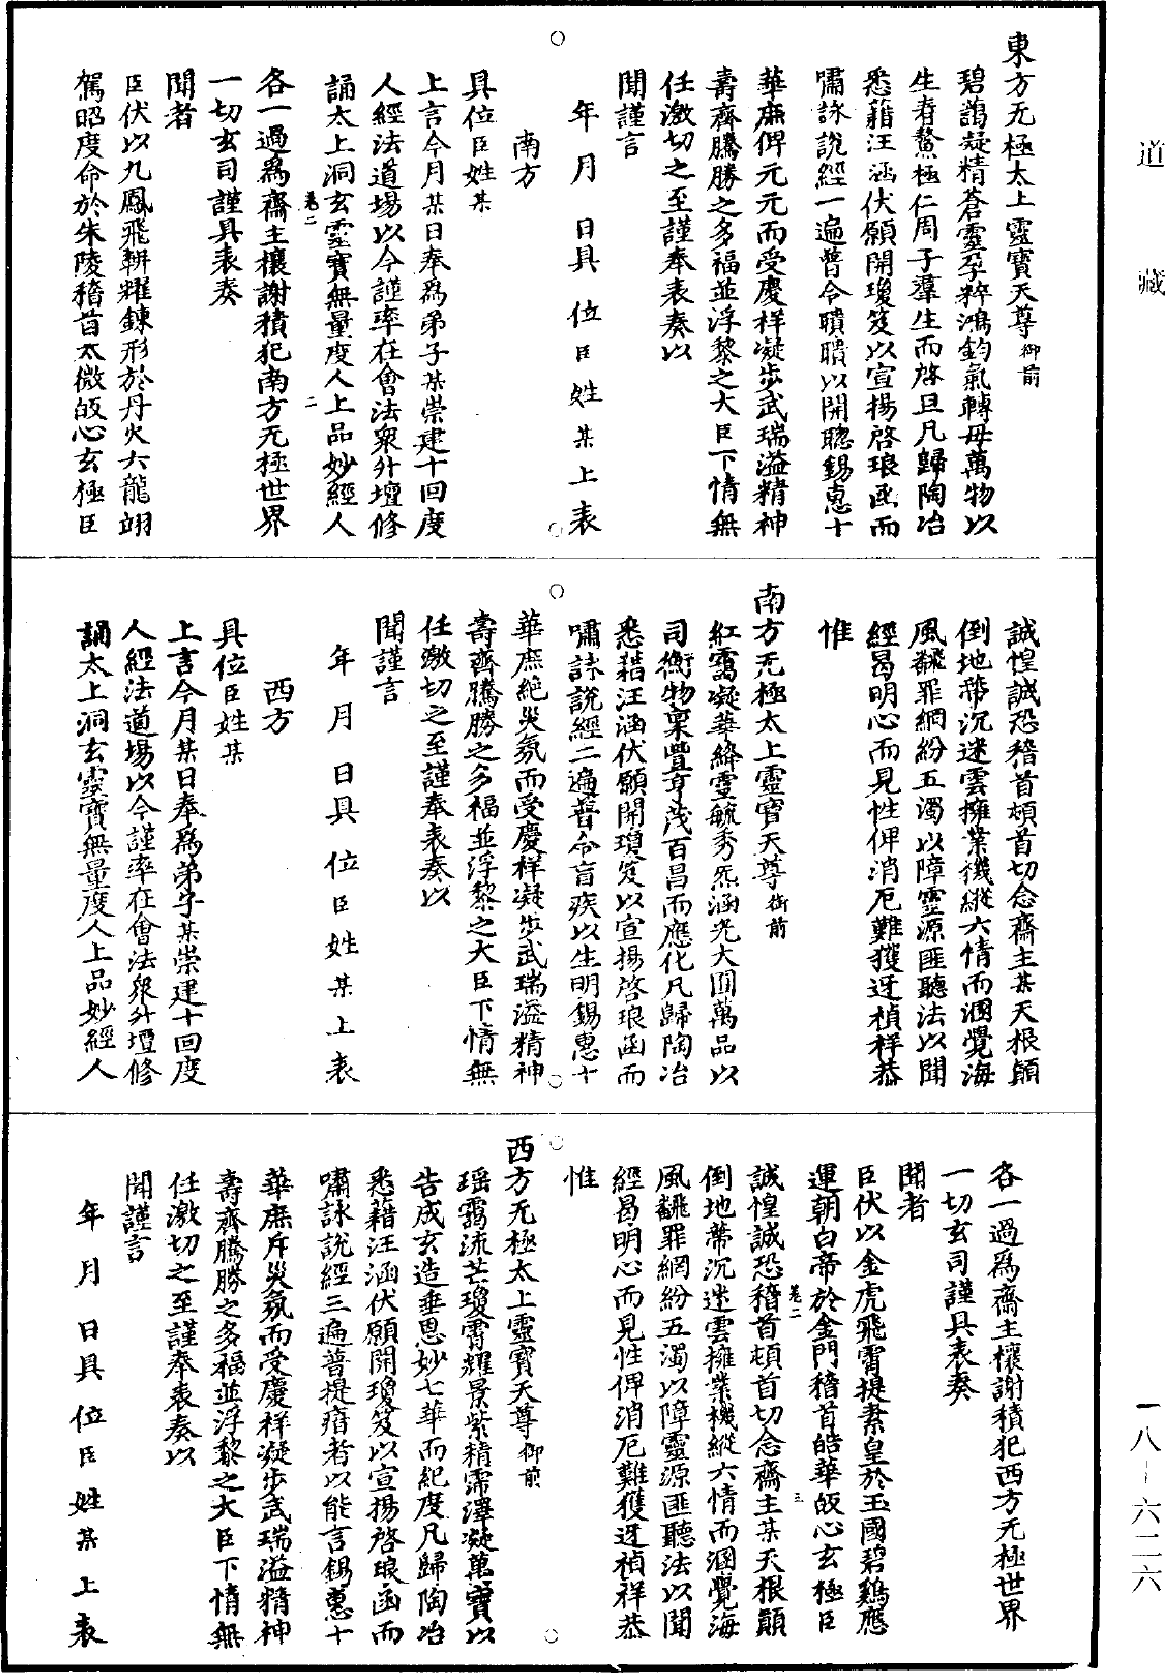 道藏
一八—六二六
東方无極太上靈寶天尊御前
碧靄凝精蒼靈孕粹鴻鈞氣轉毋萬物以
生春鰲極仁周子羣生而啓旦凡歸陶冶
悉藉汪涵伏願開瓊笈以宣揚啓琅函而
嘯詠說經一遍普令聵聵以開聰錫惠十
華庶俾元元而受慶祥凝步武瑞溢精神
壽齊騰勝之多福並浮黎之大臣下情無
任激切之至謹奉表奏以
聞謹言
年月日具位臣姓某上表
南方
具位臣姓某
上言今月某日奉爲弟子某崇建十回度
人經法道場以今謹率在會法衆升壇修
誦太上洞玄靈寶無量度人上品妙經人
卷二 二
各一過爲齋主禳謝積犯南方无極世界
一切玄司謹具表奏
聞者
臣伏以九鳳飛輧耀鍊形於丹火六龍翊
駕昭度命於朱陵稽首太微皈心玄極臣
誠惶誠恐稽首頓首切念齋主某天根顚
倒地蔕沉迷雲擁業機縱六情而溷覺海
風飜罪網紛五濁以障靈源匪聽法以聞
經曷明心而見性俾消厄難獲迓禎祥恭
惟
南方无極太上靈寶天尊御前
紅靄凝華絳靈毓秀炁涵光大囿萬品以
司衡物稟豐亨茂百昌而應化凡歸陶冶
悉藉汪涵伏願開瓊笈以宣揚啓琅函而
嘯詠說經二遍普令盲疾以生明錫惠十
華庶絶災氛而受慶祥凝步武瑞溢精神
壽齊騰勝之多福並浮黎之大臣下情無
任激切之至謹奉表奏以
聞謹言
年月日具位臣姓某上表
西方
具位臣姓某
上言今月某日奉爲弟子某崇建十回度
人經法道場以今謹率在會法衆升壇修
誦太上洞玄靈寶無量度人上品妙經人
各一過爲齋主禳謝積犯西方无極世界
一切玄司謹具表奏
聞者
臣伏以金虎飛霄提素皇於玉國碧鷄應
運朝白帝於金門稽首皓華皈心玄極臣
卷二 三
誠惶誠恐稽首頓首切念齋主某天根顚
倒地蔕沉迷雲擁業機縱六情而溷覺海
風飜罪網紛五濁以障靈源匪聽法以聞
經曷明心而見性俾消厄難獲迓禎祥恭
惟
西方无極太上靈寶天尊御前
瑶靄流芒瓊霄耀景紫精霈澤凝萬寶以
告成玄造垂恩妙七華而紀度凡歸陶冶
悉藉汪涵伏願開瓊笈以宣揚啓琅函而
嘯詠說經三遍普提瘖者以能言錫惠十
華庶斥災氛而受慶祥凝步武瑞溢精神
壽齊騰勝之多福並浮黎之大臣下情無
任激切之至謹奉表奏以
聞謹言
年月日具位臣姓某上表